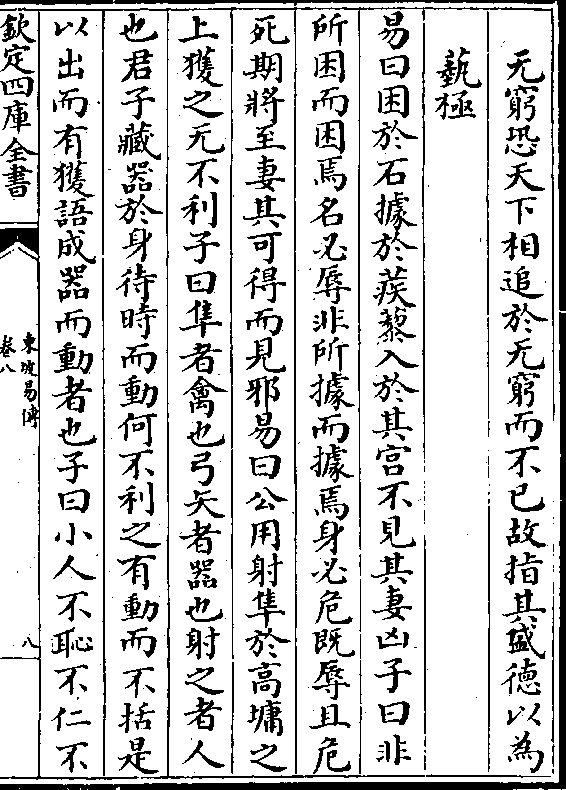 无窮恐天下相追於无窮而不已故指其盛德以為
藝極
易曰困於石據於蒺藜入於其宫不見其妻凶子曰非
所困而困焉名必辱非所據而據焉身必危既辱且危
死期將至妻其可得而見邪易曰公用射隼於高墉之
上獲之无不利子曰隼者禽也弓矢者器也射之者人
也君子藏器於身待時而動何不利之有動而不括是
以出而有獲語成器而動者也子曰小人不恥不仁不
欽定四庫全書
東坡易傳
卷八
八